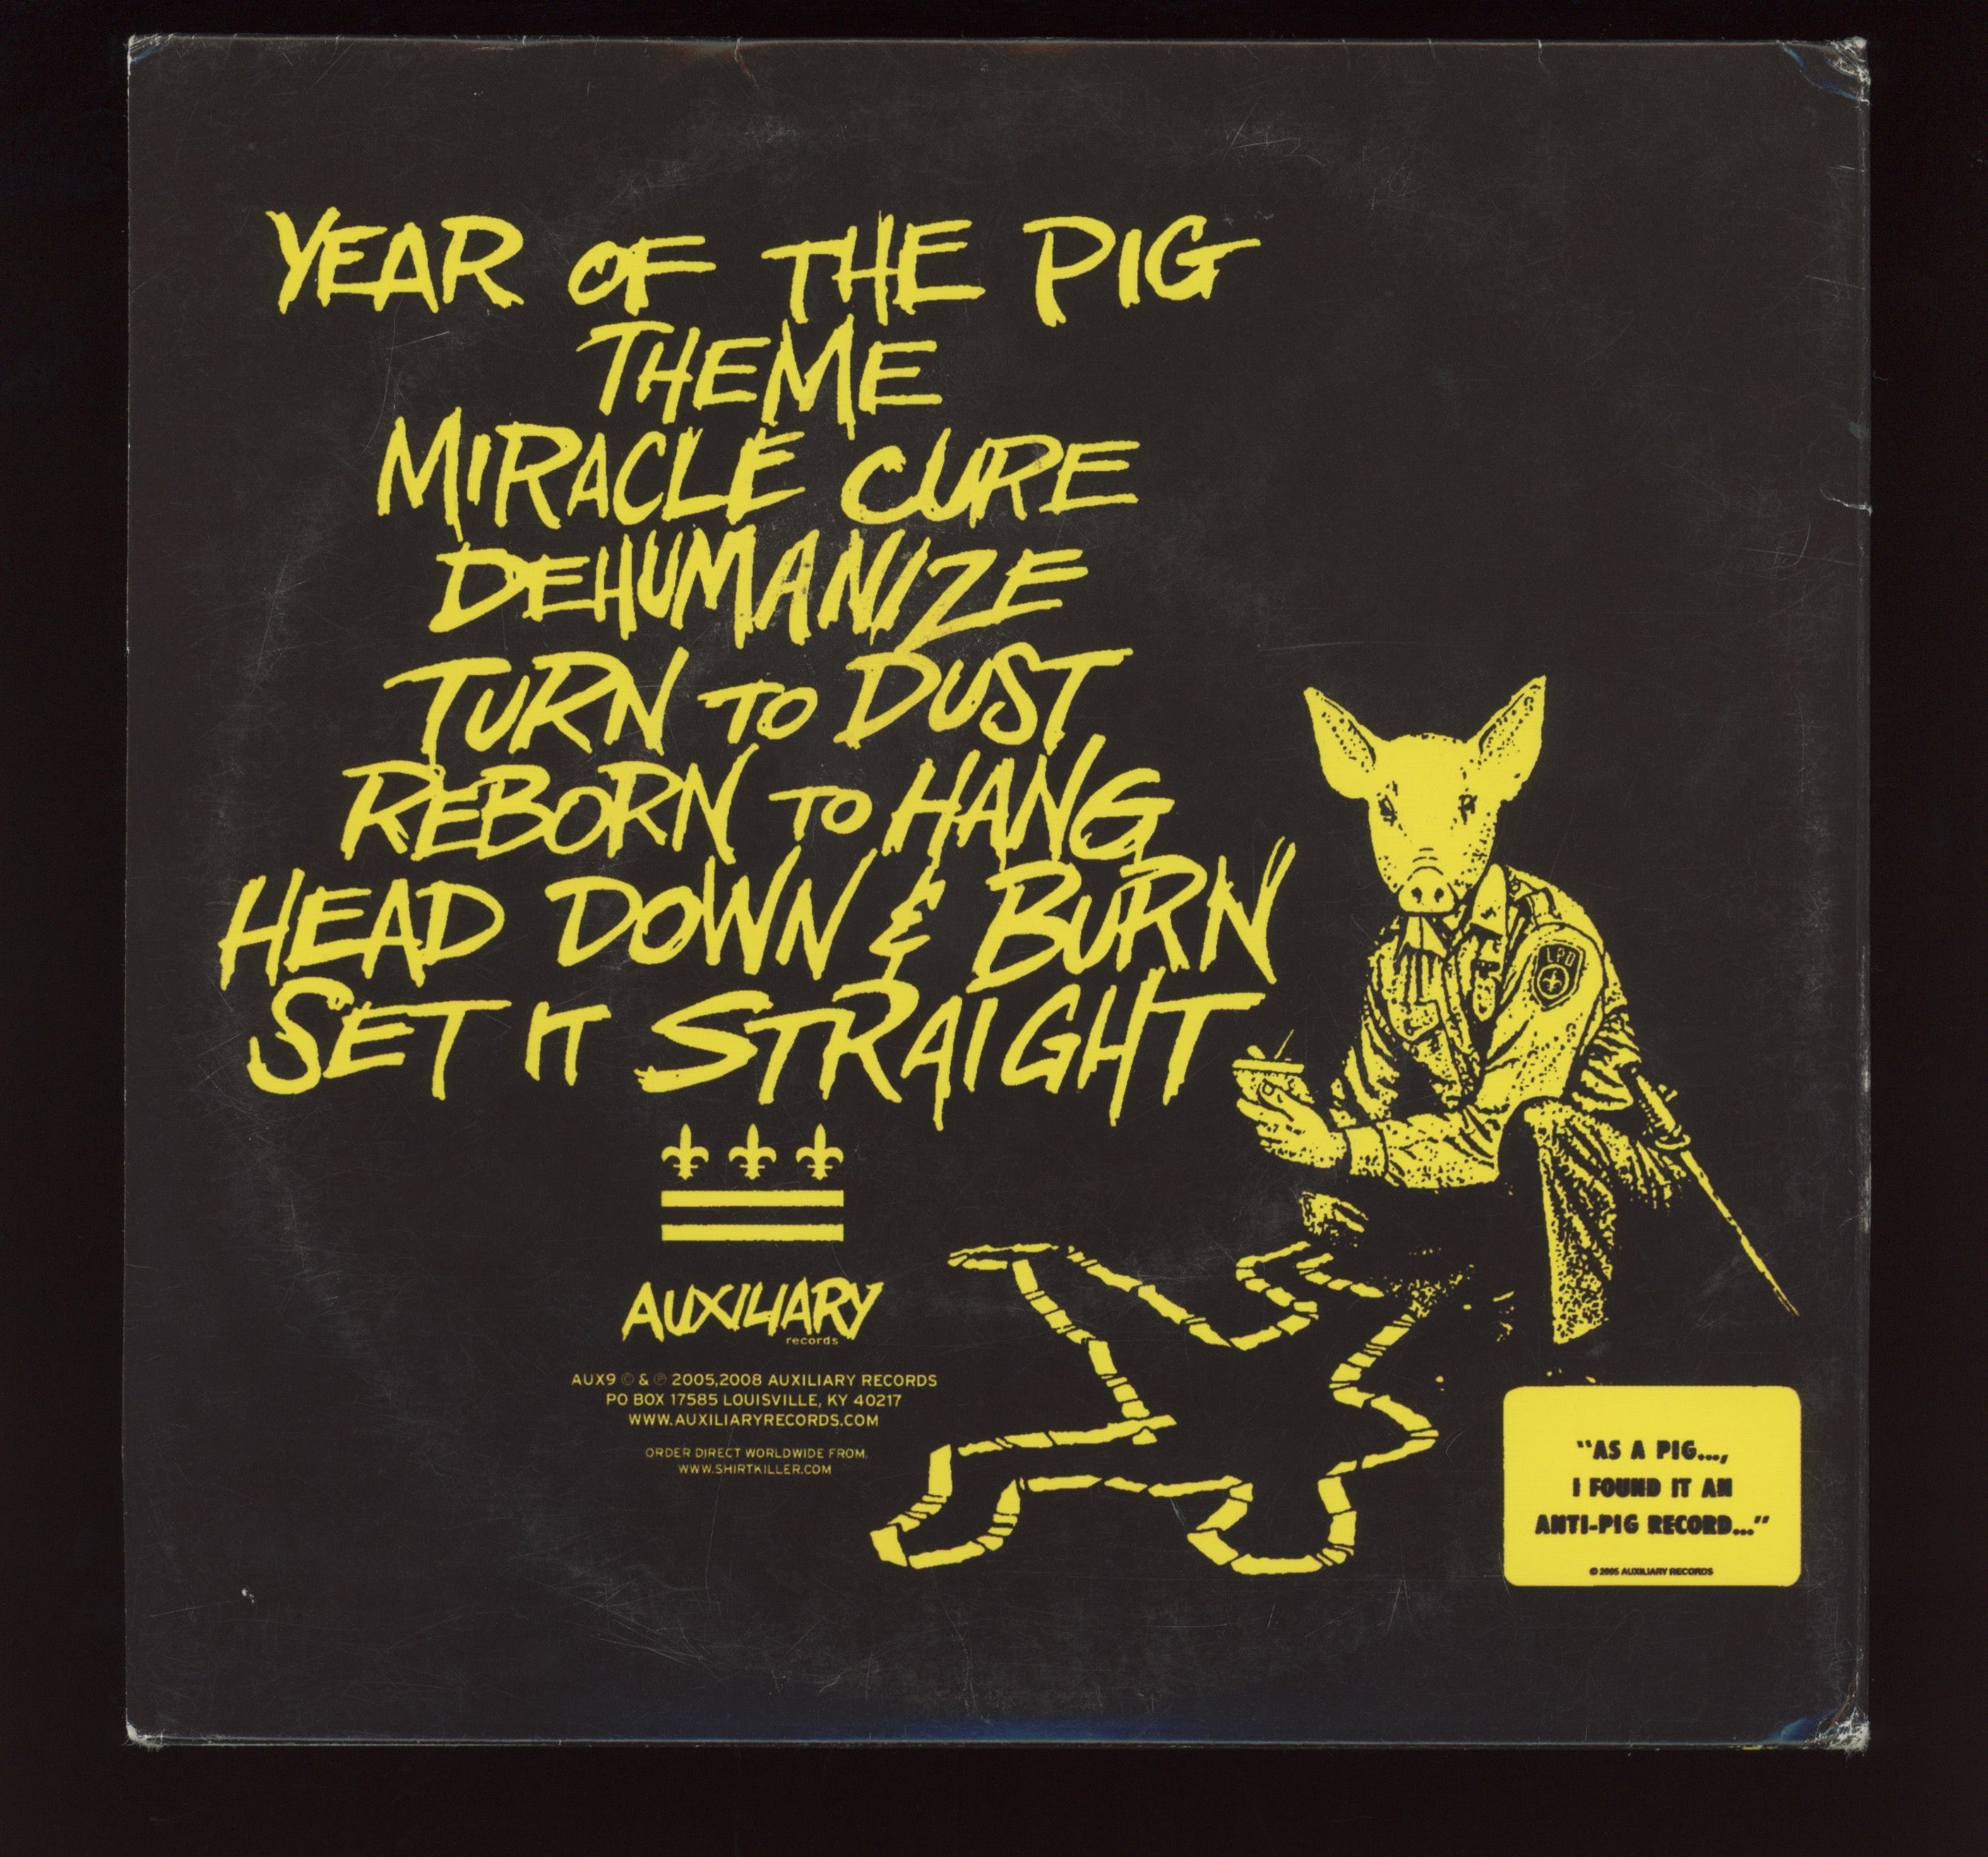 YEAR OF THE PIG
THEME
MIRACLE CURE
DEHUMANIZE
TURN TO DUST
REBORN TO HANG
HEAD DOWN & BURN
SET IT STRAIGHT
LPD
AUXILIARY
records
AUX9 © & ℗ 2005,2008 AUXILIARY RECORDS
PO BOX 17585 LOUISVILLE, KY 40217
WWW.AUXILIARYRECORDS.COM
ORDER DIRECT WORLDWIDE FROM,
WWW.SHIRTKILLER.COM
"AS A PIG...,
I FOUND IT AN
ANTI-PIG RECORD..."
© 2005 AUXILIARY RECORDS